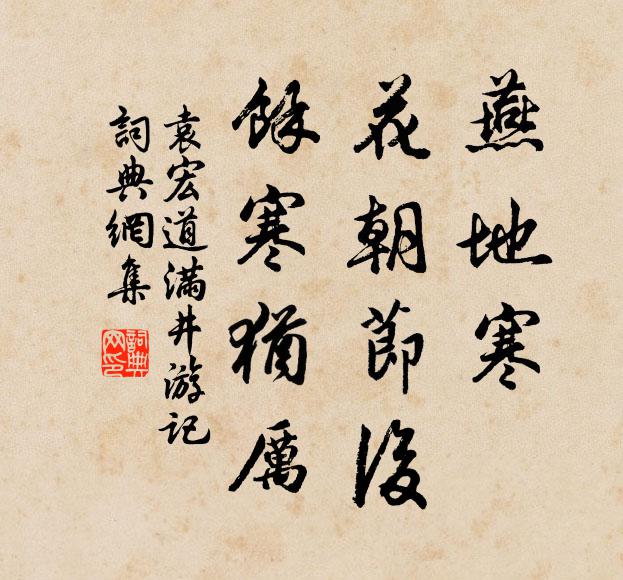 燕地寒
花朝節後
餘寒猶厲
袁宏道滿井游記
詞典網集
詞典网印